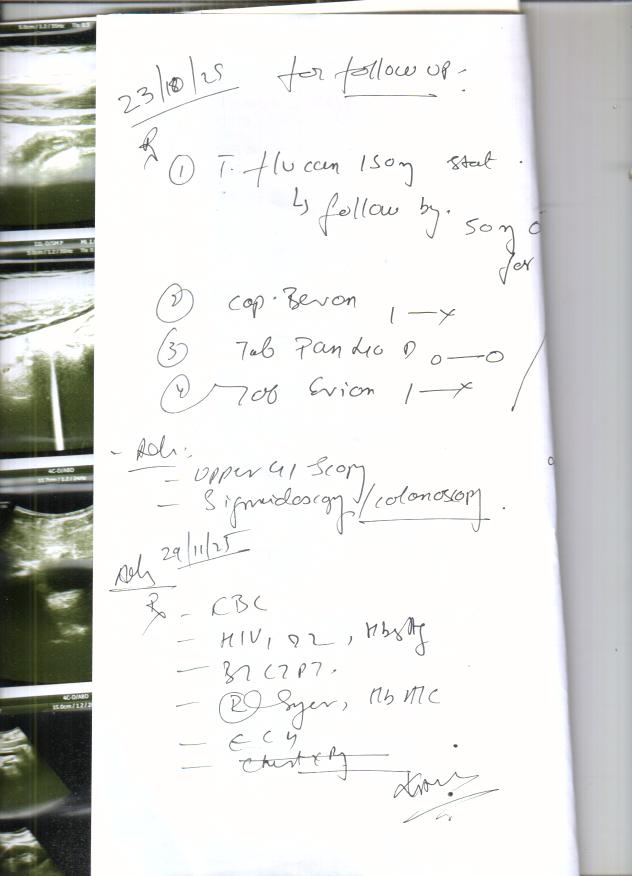 23/10/25 for follow up :
Rx
① T. flucan 150mg stat .
↳ follow by . 50mg
for
② cap. Bevon 1 —x
③ Tab Pan 40 D 0—0
④ Tab Evion 1 —x
- Adv :
- Upper GI Scopy
- Sigmoidoscopy / colonoscopy .
29/11/25
Adv
Rx - CBC
- HIV 1 & 2 , HbsAg
- BT CT PT .
- Ⓡ Sugar , Hb A1C
- ECG
- Chest x Ray